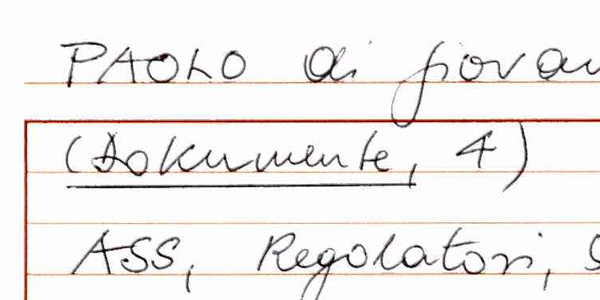 PAOLO di giovan
(Dokumente, 4)
ASS, Regolatori, S